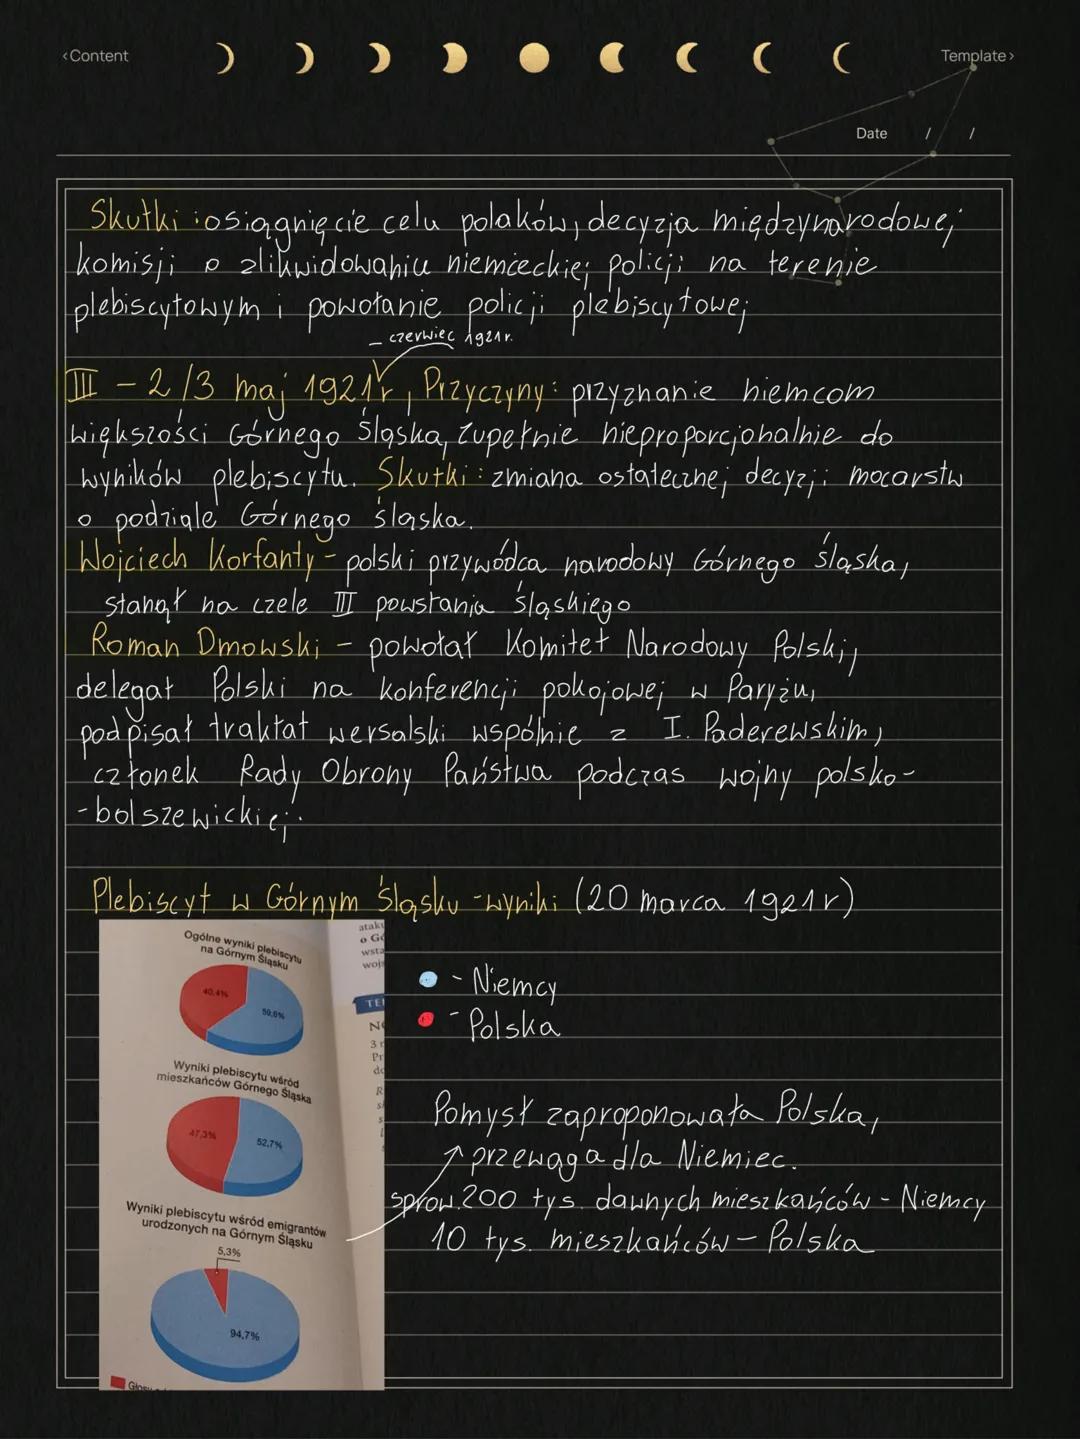 ‹Content
Template›
Date / /
Skutki : osiągnięcie celu polaków, decyzja międzynarodowej
komisji o zlikwidowaniu niemieckiej policji na terenie
plebiscytowym i powołanie policji plebiscytowej
– czerwiec 1921r.
III – 2/3 maj 1921r, Przyczyny: przyznanie niemcom
większości Górnego Śląska, zupełnie nieproporcjonalnie do
wyników plebiscytu. Skutki: zmiana ostatecznej decyzji mocarstw
o podziale Górnego śląska.
Wojciech Korfanty – polski przywódca narodowy Górnego śląska,
stanął na czele III powstania śląskiego
Roman Dmowski – powołał Komitet Narodowy Polski,
delegat Polski na konferencji pokojowej w Paryżu,
podpisał traktat wersalski wspólnie z I. Paderewskim,
członek Rady Obrony Państwa podczas wojny polsko-
-bolszewickiej.
Plebiscyt w Górnym Śląsku -wyniki (20 marca 1921r)
Ogólne wyniki plebiscytu
na Górnym Śląsku
40,4%
59,6%
Wyniki plebiscytu wśród
mieszkańców Górnego Śląska
47,3%
52,7%
Wyniki plebiscytu wśród emigrantów
urodzonych na Górnym Śląsku
5,3%
94,7%
- Niemcy
- Polska
Pomysł zaproponowała Polska,
przewaga dla Niemiec.
sprow. 200 tys. dawnych mieszkańców - Niemcy
10 tys. mieszkańców – Polska